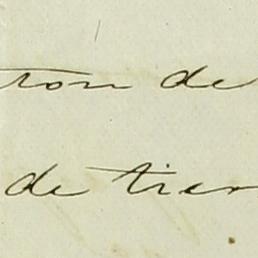 ton de
de tier